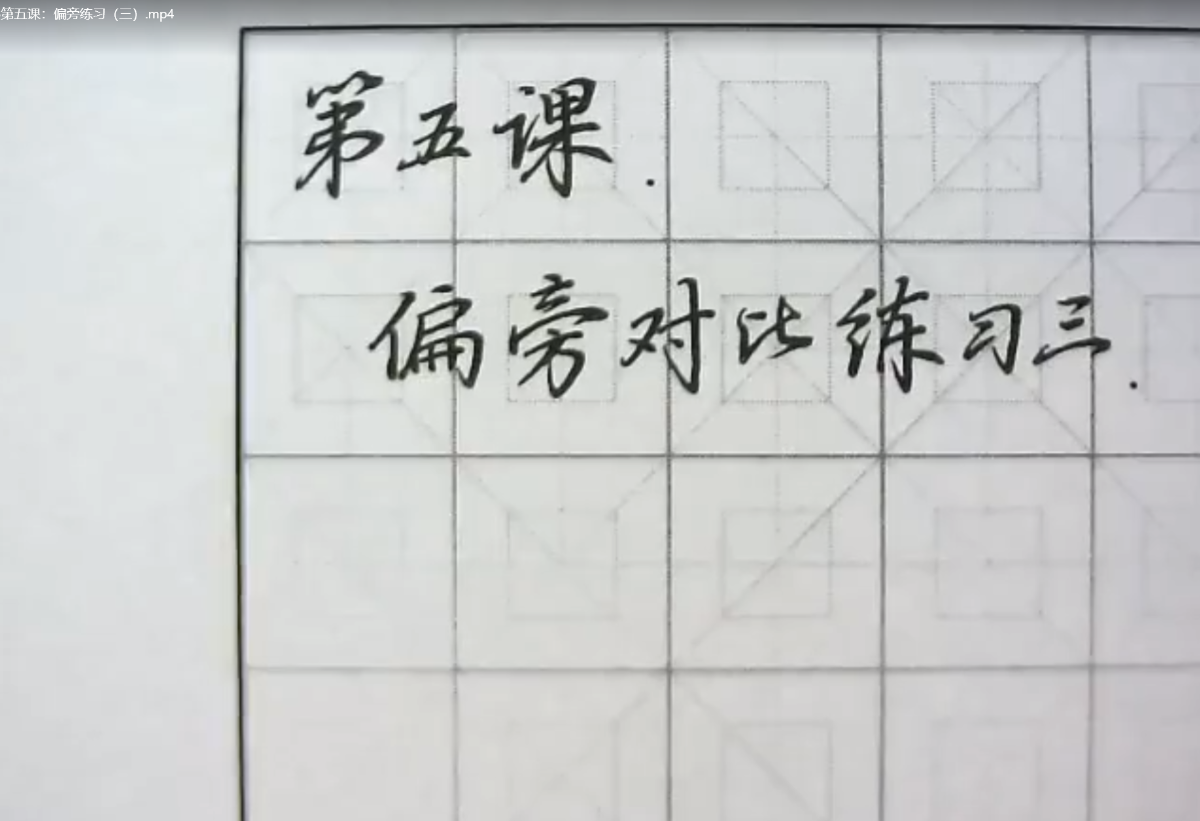 第五课：偏旁练习（三）.mp4
第五课.
偏旁对比练习三.